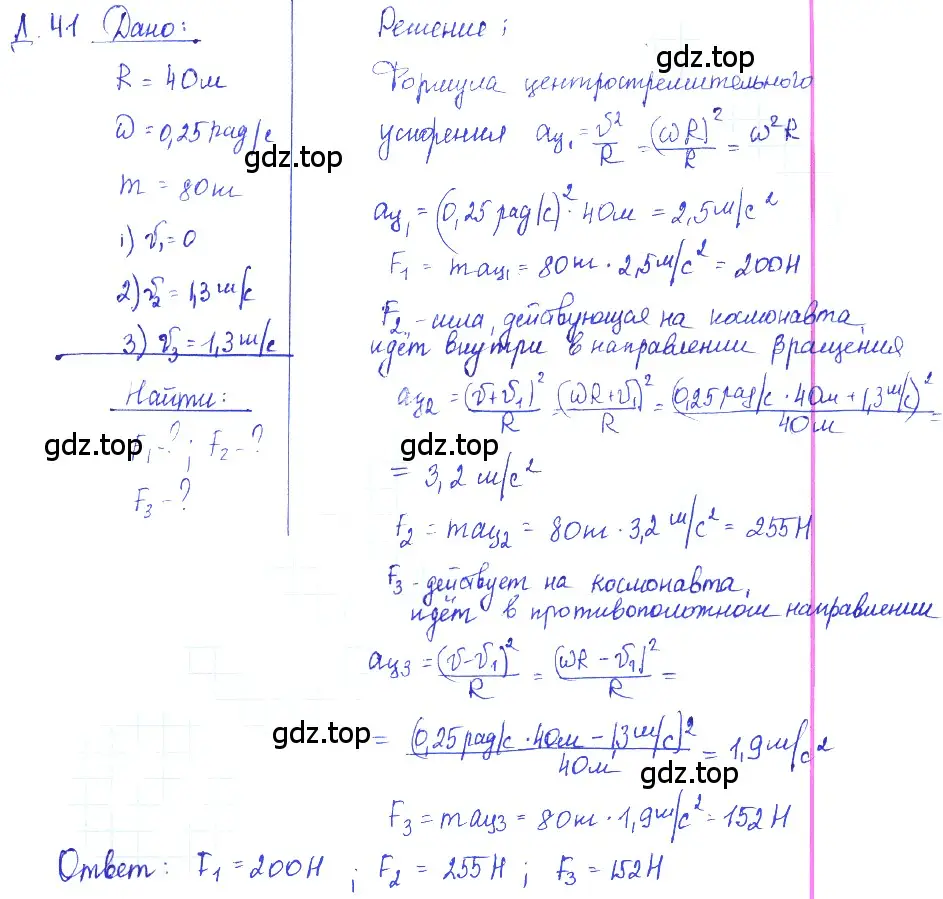 Д. 41 Дано:
R = 40м
ω = 0,25 рад/с
m = 80кг
1) v₁ = 0
2) v₂ = 1,3 м/с
3) v₃ = 1,3 м/с
Найти:
F₁ - ? ; F₂ - ?
F₃ - ?
Решение:
Формула центростремительного
ускорения aц₁ = v²/R = (ωR)²/R = ω²R
aц₁ = (0,25 рад/с)² · 40м = 2,5 м/с²
F₁ = maц₁ = 80кг · 2,5 м/с² = 200Н
F₂ - сила, действующая на космонавта,
идёт внутри в направлении вращения
aц₂ = (v+v₁)²/R = (ωR+v₁)²/R = (0,25 рад/с · 40м + 1,3 м/с)²/40м =
= 3,2 м/с²
F₂ = maц₂ = 80кг · 3,2 м/с² = 255Н
F₃ - действует на космонавта,
идёт в противоположном направлении
aц₃ = (v-v₁)²/R = (ωR - v₁)²/R =
= (0,25 рад/с · 40м - 1,3 м/с)²/40м = 1,9 м/с²
F₃ = maц₃ = 80кг · 1,9 м/с² = 152Н
Ответ: F₁ = 200Н ; F₂ = 255Н ; F₃ = 152Н
gdz.top
gdz.top
gdz.top
gdz.top
gdz.top
gdz.top